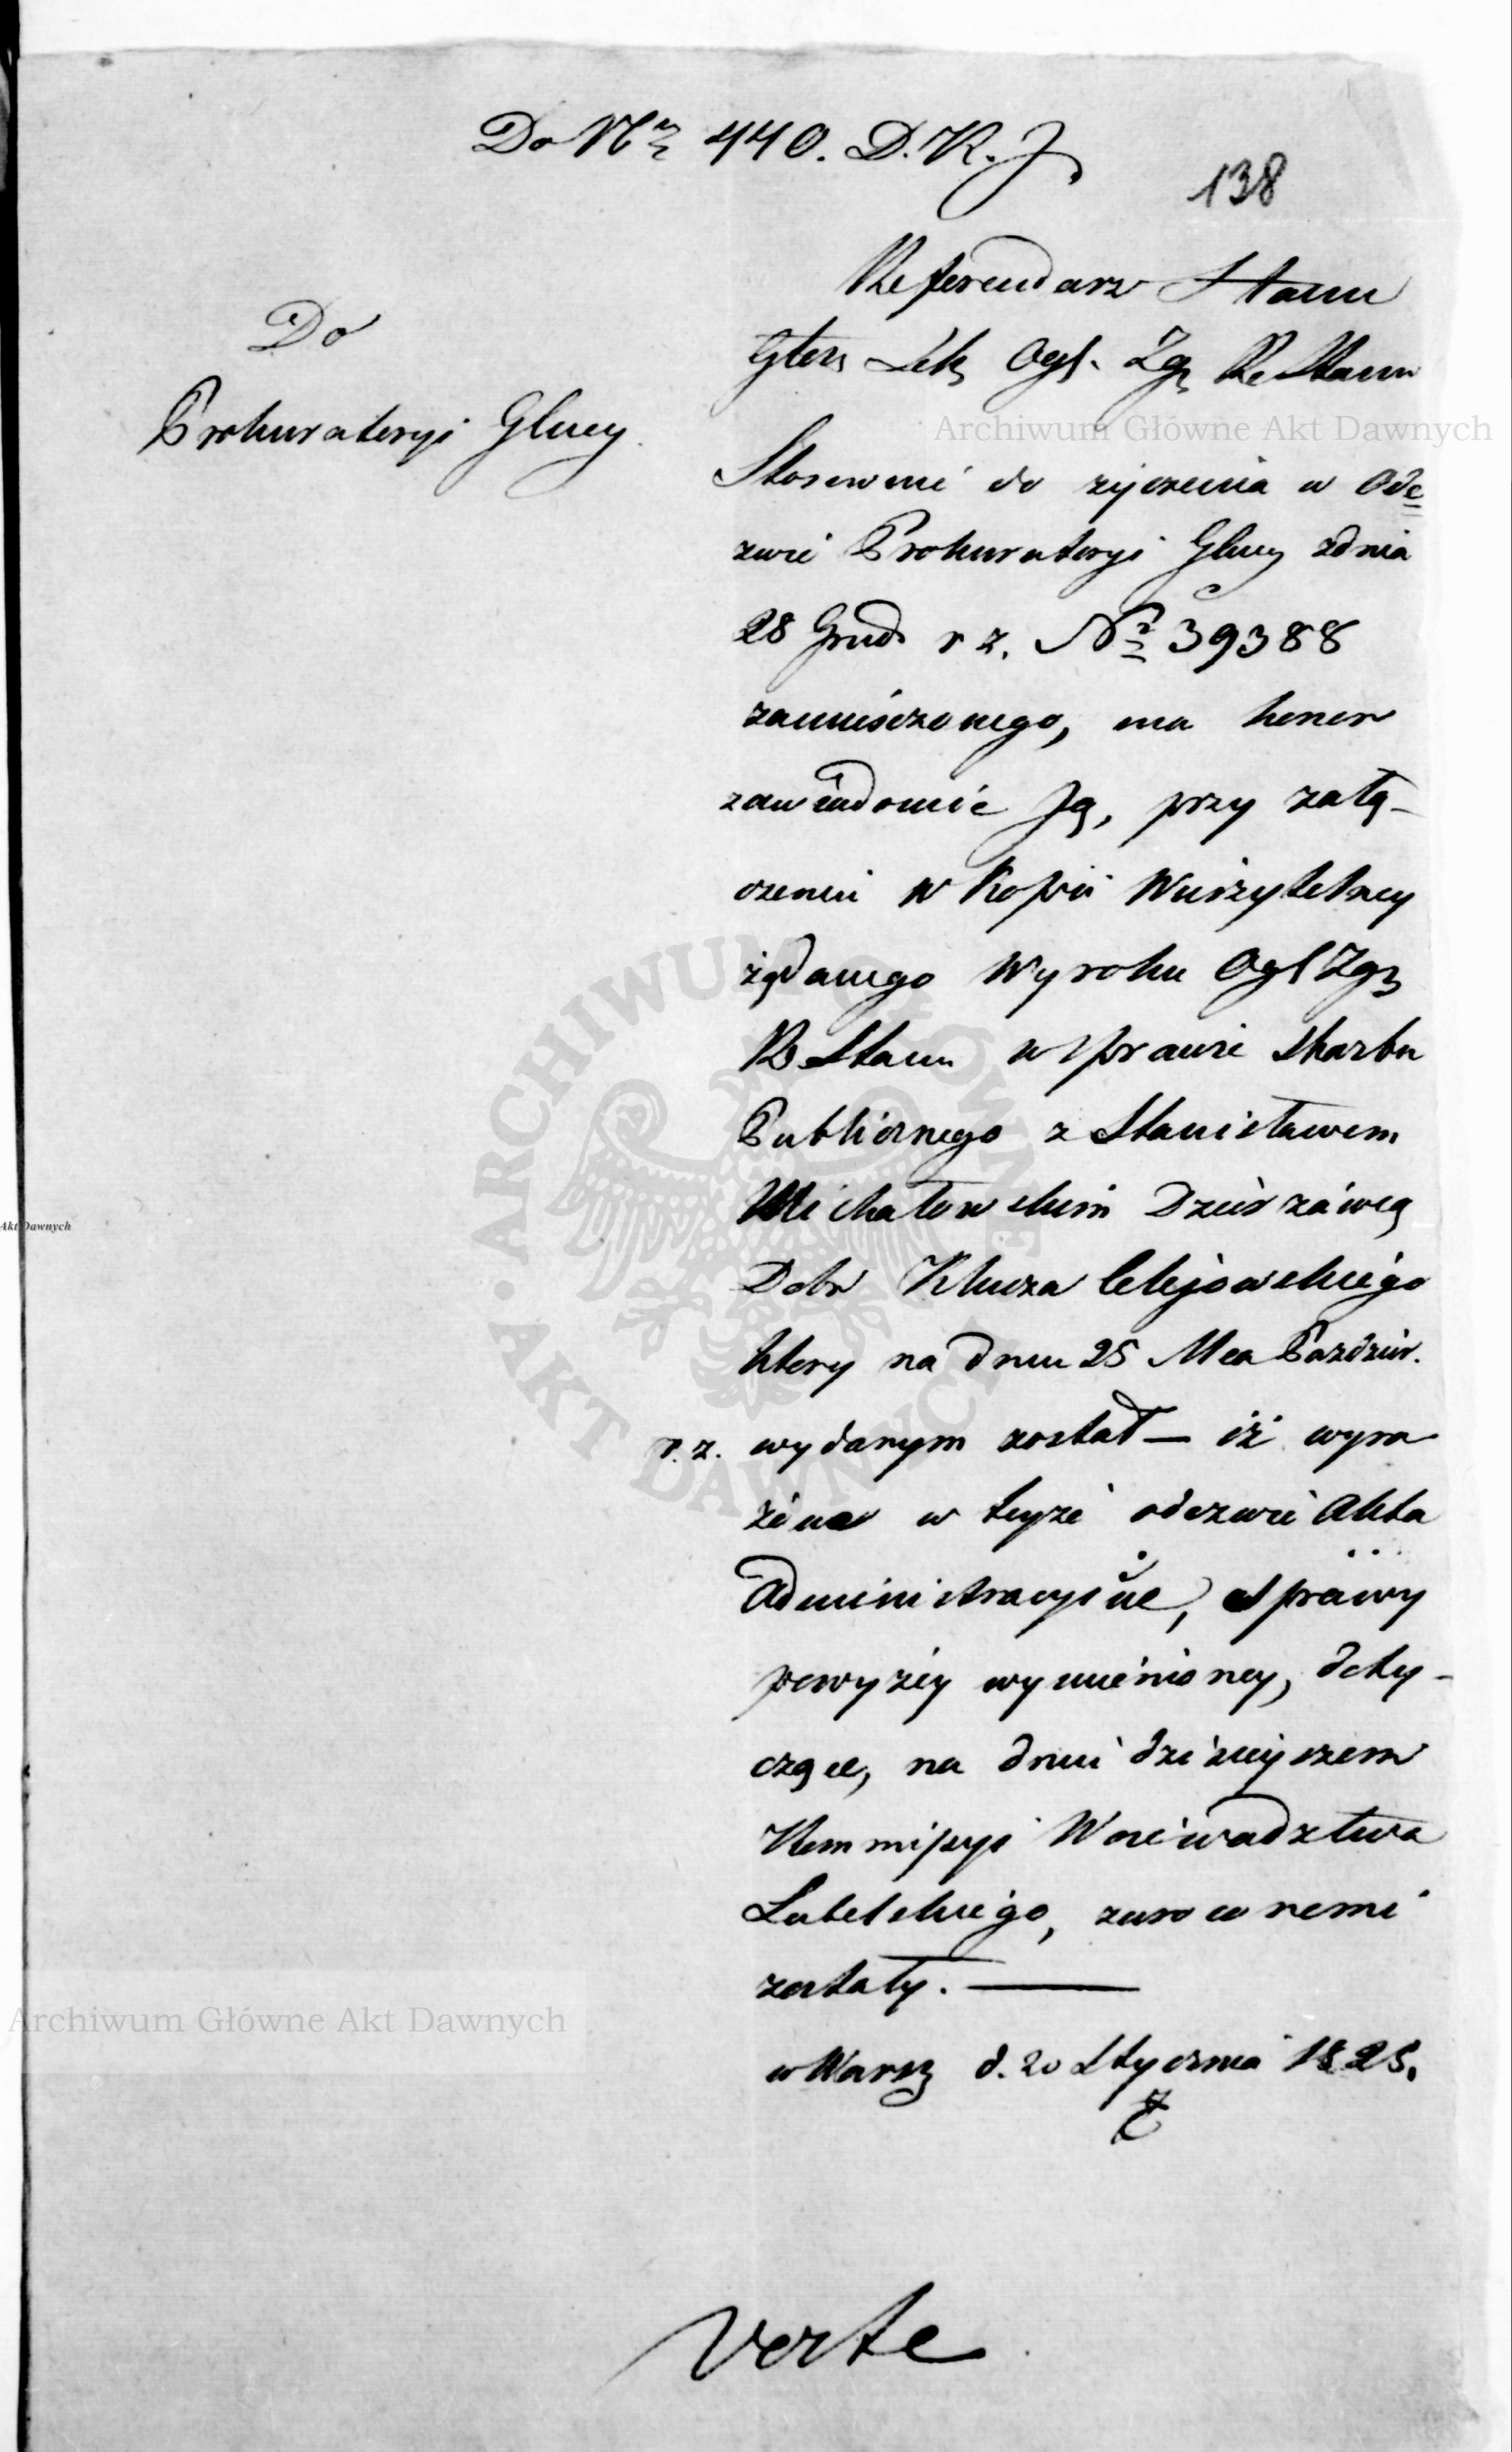 Do Nr 440. D.K.J.
138
Do
Prokuratoryi Głney.
Referendarz Stanu
Głów Sekr Ogl. Zgr Ry Stanu
Stosownie do życzenia w Ode
zwie Prokuratoryi Głney z dnia
28 Grud. r z. Nr 39388
zamieszczonego, ma honor
zawiadomić Ją, przy załą-
czeniu w Kopii Wierzytelney
żądanego Wyroku Ogl Zgr
R Stanu w sprawie Skarbu
Publicznego z Stanisławem
Michałowskim Dzierżawcą
Dobr Klucza Celejowskiego
który na dniu 25 Mca Paździer.
r. z. wydanym został — iż wyra
żone w teyże odezwie Akta
Administracyine, sprawy
powyżey wymienioney, doty-
czące, na dniu dzisieyszem
Kommissyi Woiewodztwa
Lubelskiego, zwroconemi
zostały. —
w Warsz d. 20 Stycznia 1825.
verte
Archiwum Główne Akt Dawnych
Archiwum Główne Akt Dawnych
Akt Dawnych
ARCHIWUM GŁÓWNE AKT DAWNYCH